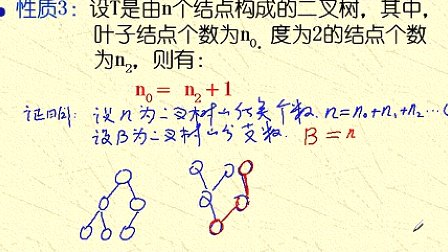 • 性质3：设T是由n个结点构成的二叉树，其中，
叶子结点个数为n₀，度为2的结点个数
为n₂，则有：
n₀ = n₂+1
证明：设n为二叉树的结点个数. n=n₀+n₁+n₂ …(
设B为二叉树的分支数. B = n